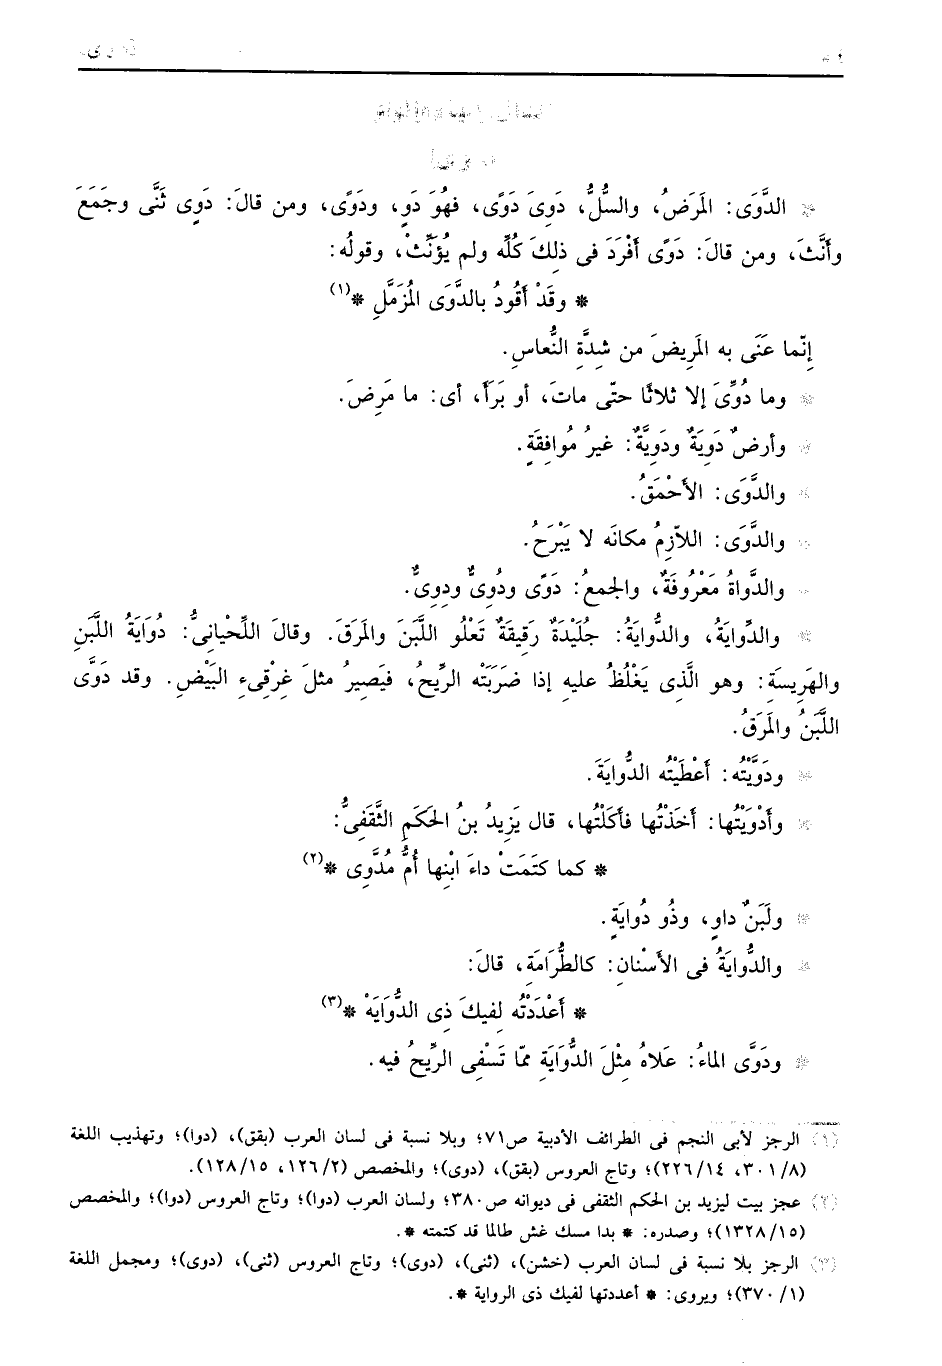 * الدَّوَى: المَرَضُ، والسُّلُّ، دَوِىَ دَوًى، فهُوَ دَوٍ، ودَوًى، ومن قالَ: دَوِى ثَنَّى وجَمَعَ
وأَنَّثَ، ومن قالَ: دَوًى أَفْرَدَ فى ذلِكَ كُلِّه ولم يُؤَنِّثْ، وقولُه:
* وقَدْ أَقُودُ بالدَّوَى المُزَمَّلِ *(١)
إنّما عَنَى به المَرِيضَ من شِدَّةِ النُّعاسِ.
* وما دُوِّىَ إلا ثلاثًا حتّى ماتَ، أو بَرَأَ، أى: ما مَرِضَ.
* وأرضٌ دَوِيَةٌ ودَوِيَّةٌ: غيرُ مُوافِقَةٍ.
* والدَّوَى: الأَحْمَقُ.
* والدَّوَى: اللاّزِمُ مكانَه لا يَبْرَحُ.
* والدَّواةُ مَعْرُوفَةٌ، والجمعُ: دَوًى ودُوِىٌّ ودِوِىٌّ.
* والدِّوايَةُ، والدُّوايَةُ: جُلَيْدَةٌ رَقِيقَةٌ تَعْلُو اللَّبَنَ والمَرَقَ. وقالَ اللِّحْيانِىُّ: دُوَايَةُ اللَّبَنِ
والهَرِيسَةِ: وهو الَّذِى يَغْلُظُ عليهِ إذا ضَرَبَتْه الرِّيحُ، فيَصِيرُ مثلَ غِرْقِىءِ البَيْضِ. وقد دَوَّى
اللَّبَنُ والمَرَقُ.
* ودَوَّيْتُه: أَعْطَيْتُه الدُّوايَةَ.
* وأَدْوَيْتُها: أَخَذْتُها فأَكَلْتُها، قال يَزِيدُ بنُ الحَكَمِ الثَّقَفِىُّ:
* كما كتَمَتْ داءَ ابْنِها أُمُّ مُدَّوِى *(٢)
* ولَبَنٌ داوٍ، وذُو دُوايَةٍ.
* والدُّوايَةُ فى الأَسْنانِ: كالطُّرَامَةِ، قالَ:
* أَعْدَدْتُه لفِيكَ ذِى الدُّوَايَهْ *(٣)
* ودَوَّى الماءُ: عَلاهُ مِثْلَ الدُّوَايَةِ ممّا تَسْفِى الرِّيحُ فيه.
(١) الرجز لأبى النجم فى الطرائف الأدبية ص٧١؛ وبلا نسبة فى لسان العرب (بقق)، (دوا)؛ وتهذيب اللغة
(٨/ ٣٠١، ١٤/ ٢٢٦)؛ وتاج العروس (بقق)، (دوى)؛ والمخصص (٢/ ١٢٦، ١٥/ ١٢٨).
(٢) عجز بيت ليزيد بن الحكم الثقفى فى ديوانه ص٣٨٠؛ ولسان العرب (دوا)؛ وتاج العروس (دوا)؛ والمخصص
(١٥/ ١٣٢٨)؛ وصدره: * بدا مسك غش طالما قد كتمته *.
(٣) الرجز بلا نسبة فى لسان العرب (خشن)، (ثنى)، (دوى)؛ وتاج العروس (ثنى)، (دوى)؛ ومجمل اللغة
(١/ ٣٧٠)؛ ويروى: * أعددتها لفيك ذى الرواية *.